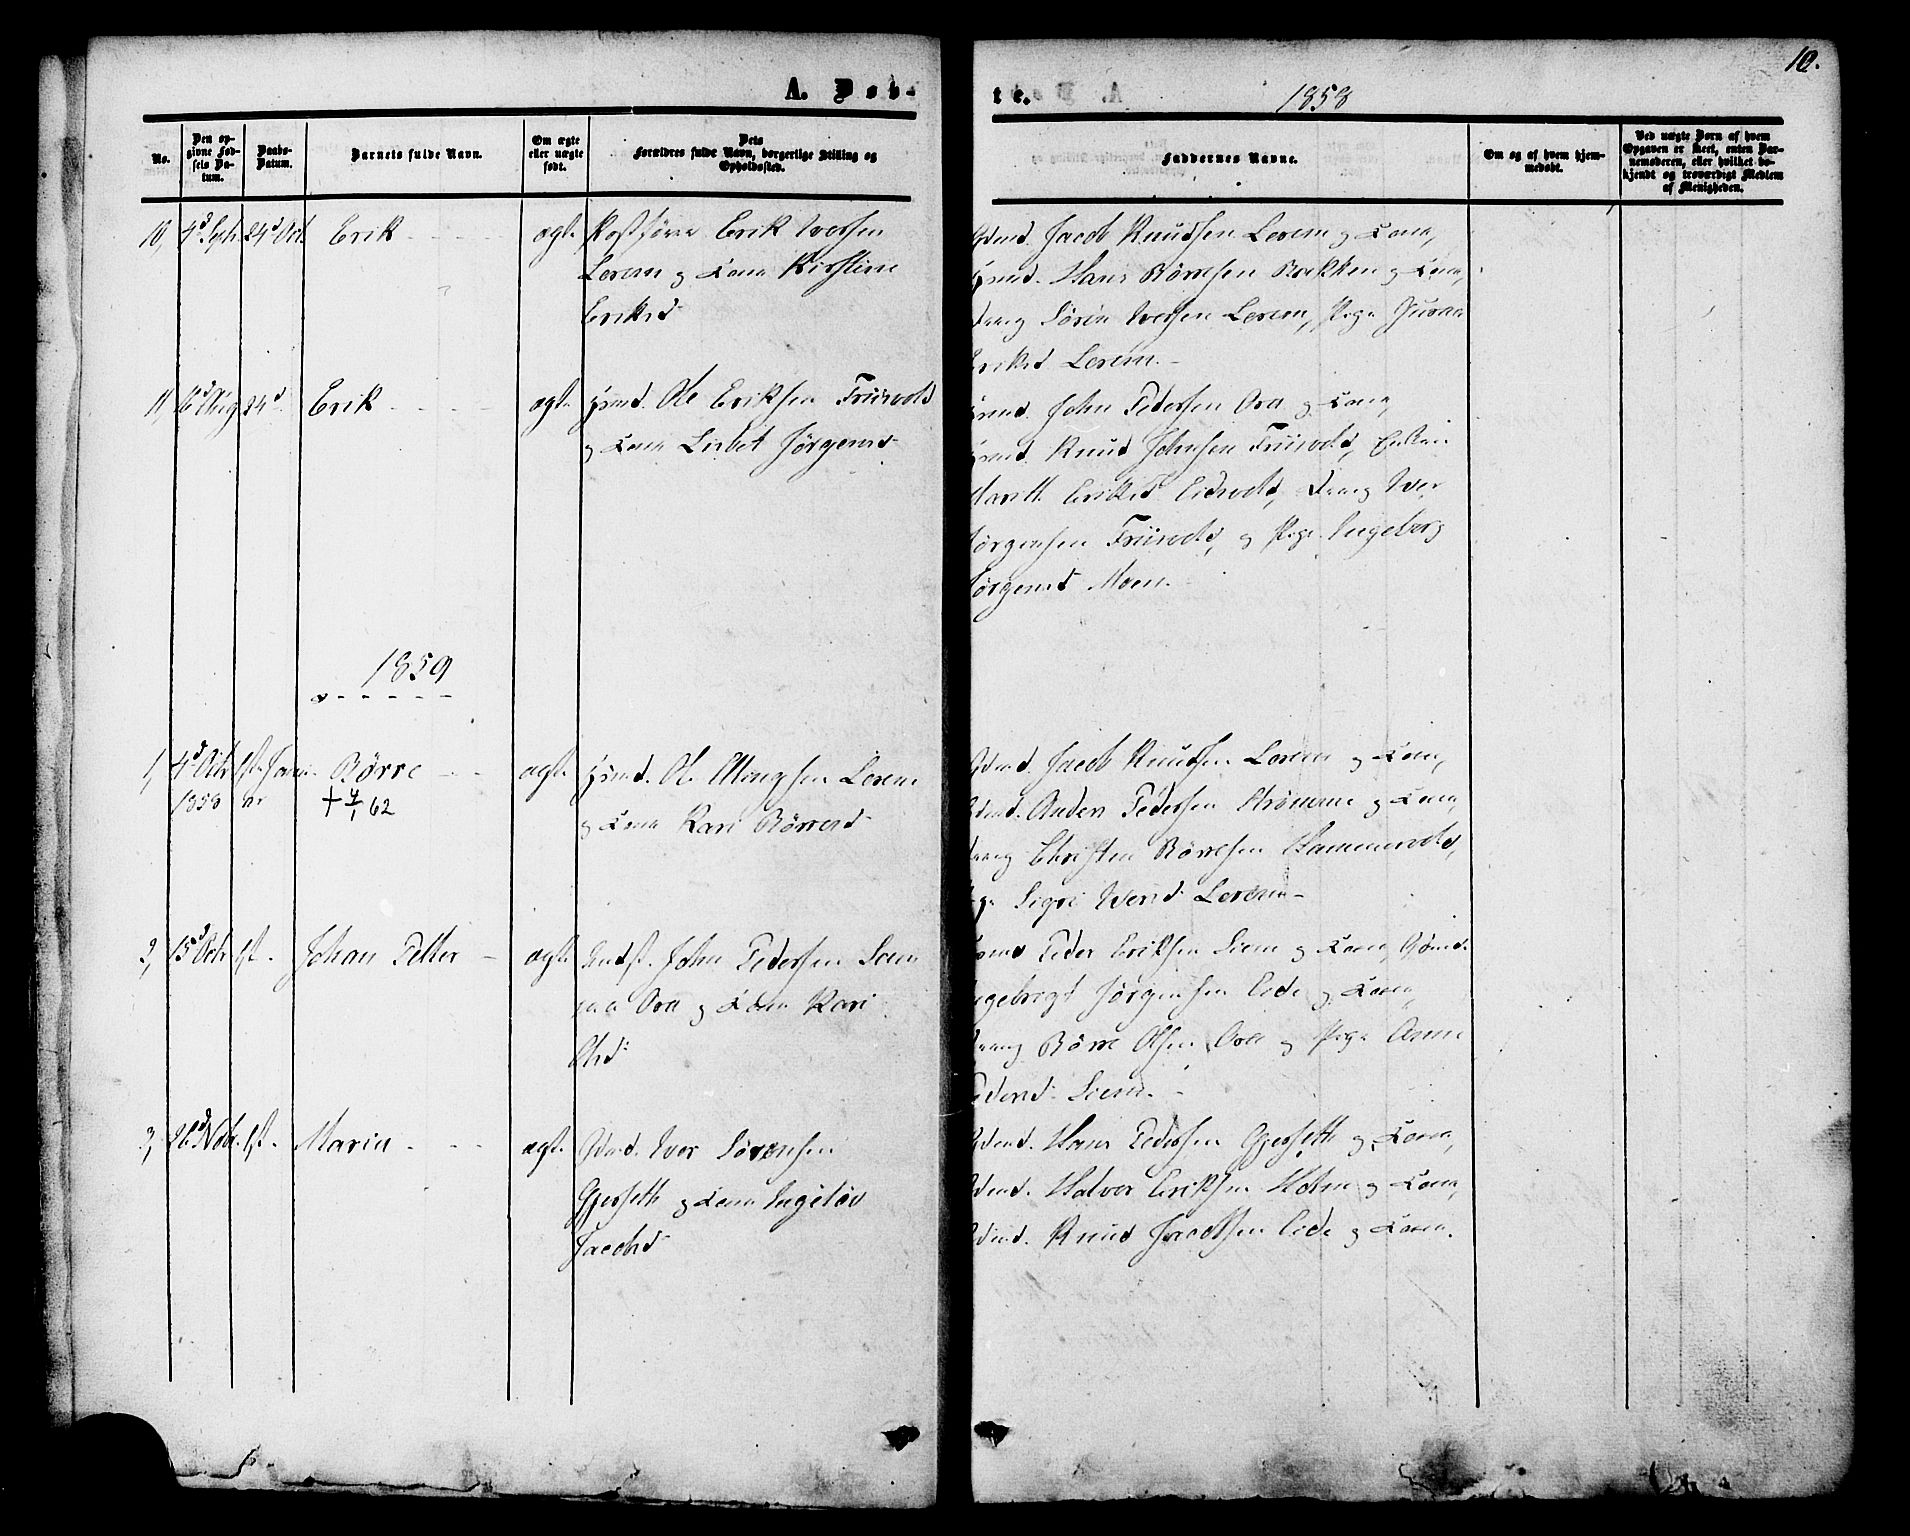 10.
A. Døbte.
1858
No.
Den opgivne Fødsels Datum.
Daabs-Datum.
Barnets fulde Navn.
Om ægte eller uægte født.
Dets Forældres fulde Navn, borgerlige Stilling og Opholdssted.
Faddernes Navne.
Om og af hvem hjemmedøbt.
Ved uægte Børn af hvem Opgaven er skeet, enten Barnemoderen, eller hvilket bekjendt og troværdigt Medlem af Menigheden.
10, 4d Sept. 24d Oct. Erik ægte Postfører Erik Iversen
Lerem og Kona Kirstine
Eriksd
Gdmd. Jacob Knudsen Lerem og Kona,
Hans Børresen Bakken og Kona,
Søren Iversen Lerem, Pige
Eriksd Lerem.
11, 6d Aug 24d Erik ægte Ole Eriksen Friisvold
og Kona Lisbet Jørgensd
John Pedersen Ora og Kona,
Knud Johnsen Friisvold,
Marith Eriksd Eidsvold, Dreng Iver
Jørgensen Friisvold, og Pige Ingeborg
Jørgensd Moen.
1859
1, 4d Octr 1858 1st Januar Børre ægte Ole Ellingsen Lerem
+ 4/1 62
og Kona Kari Børresd
Gdmd. Jacob Knudsen Lerem og Kona,
Gdmd. Anders Pedersen Strømme og Kona,
Dreng Christen Børresen Hammervold,
Pige Sigri Iversd Lerem
2, 15d Octr 1st. Johan Petter ægte Indst. John Pedersen Seem
paa Ora og Kona Kari
Olsd
Peder Eriksen Siem og Kona,
Ingebrigt Jørgensen Eide og Kona,
Dreng Børre Olsen Ora og Pige Anne
Pedersd Siem.
3, 26d Nobr. 1st. Maria ægte Gdmd. Iver Sørensen
Gjerseth og Kona Ingeløv
Jacobsd
Gdmd. Hans Pedersen Gjerseth og Kona,
Gdmd. Halvor Eriksen Holm og Kona,
Gdmd. Knud Jacobsen Eide og Kona.